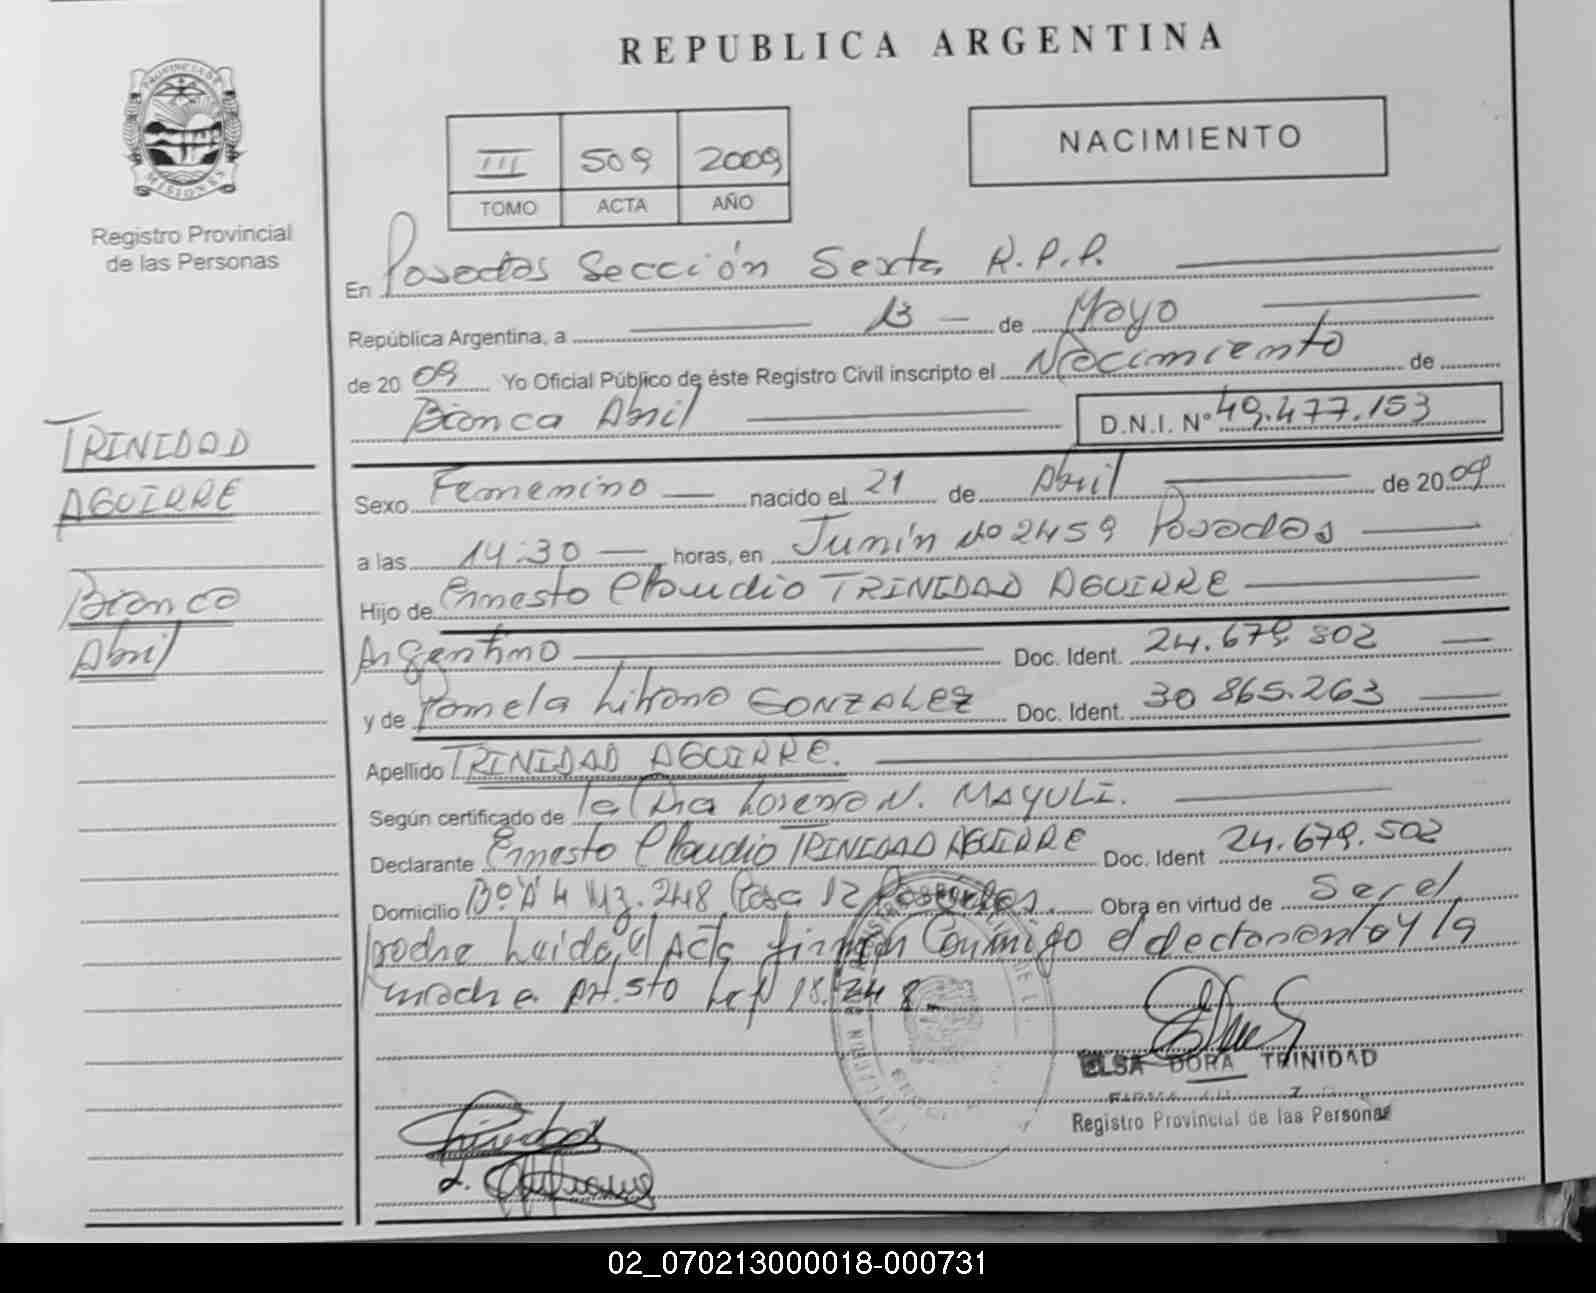 REPUBLICA ARGENTINA
PROVINCIA DE
MISIONES
Registro Provincial
de las Personas
III 509 2009
TOMO ACTA AÑO
NACIMIENTO
En Posadas Sección Sexta R.P.P.
República Argentina, a 13 de Mayo
de 2009 Yo Oficial Público de éste Registro Civil inscripto el Nacimiento de
Bianca Abril D.N.I. Nº 49.477.153
TRINIDAD
AGUIRRE
Bianca
Abril
Sexo Femenino nacido el 21 de Abril de 2009
a las 14:30 horas, en Junín Nº 2459 Posadas
Hijo de Ernesto Claudio TRINIDAD AGUIRRE
Argentino Doc. Ident. 24.679.502
y de Pamela Liliana GONZALEZ Doc. Ident. 30 865.263
Apellido TRINIDAD AGUIRRE.
Según certificado de la Dra Lorena N. MAYULI.
Declarante Ernesto Claudio TRINIDAD AGUIRRE Doc. Ident 24.679.502
Domicilio Bº A 4 Mz. 248 Casa 12 Posadas. Obra en virtud de Ser el
padre Leida, el Acta firman Conmigo el declarante y la
madre Art. 5to Ley 18.248
ELSA DORA TRINIDAD
Registro Provincial de las Personas
02_070213000018-000731